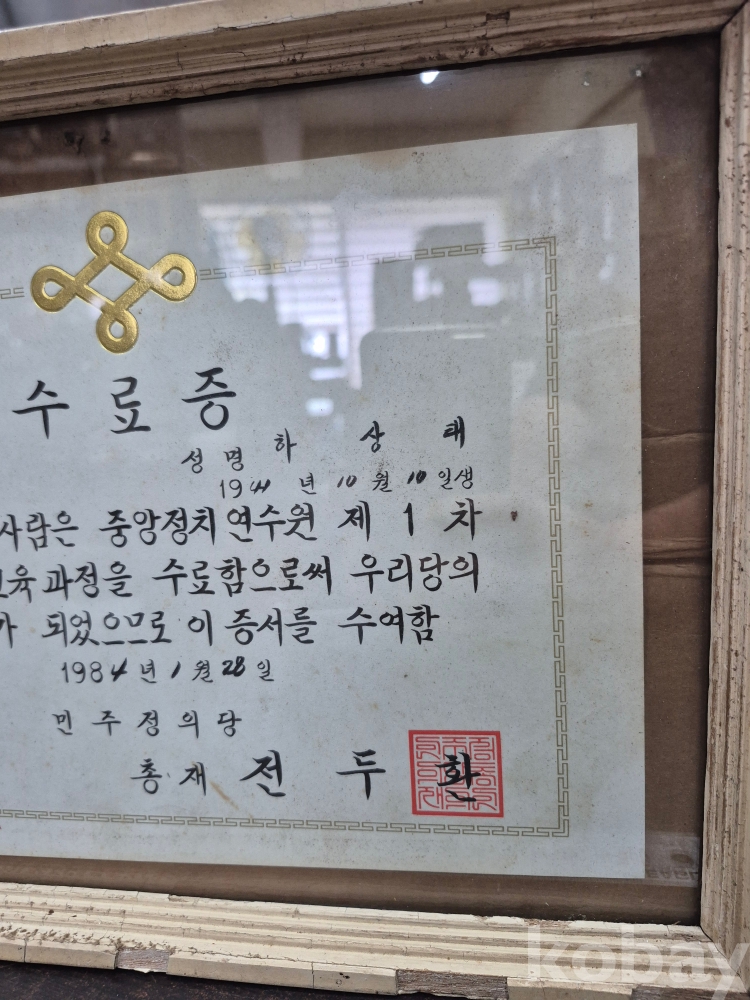 수료증
성명 하 상 태
1941년 10월 10일생
사람은 중앙정치연수원 제 1 차
육과정을 수료함으로써 우리당의
되었으므로 이 증서를 수여함
1984년 1월 28일
민주정의당
총재 전 두 환
kobay